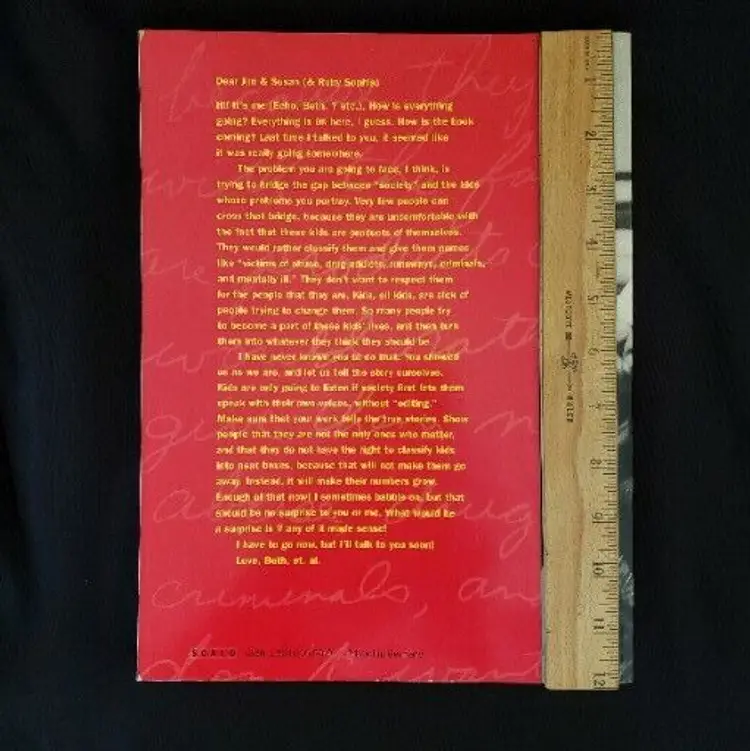 Dear Jim & Susan (& Ruby Sophia)
Hi! It's me (Echo, Beth, ? etc.). How is everything
going? Everything is OK here, I guess. How is the book
coming? Last time I talked to you, it seemed like
it was really going somewhere.
The problem you are going to face, I think, is
trying to bridge the gap between "society" and the kids
whose problems you portray. Very few people can
cross that bridge, because they are uncomfortable with
the fact that these kids are products of themselves.
They would rather classify them and give them names
like "victims of abuse, drug addicts, runaways, criminals,
and mentally ill." They don't want to respect them
for the people that they are. Kids, all kids, are sick of
people trying to change them. So many people try
to become a part of these kids' lives, and then turn
them into whatever they think they should be.
I have never known you to do that. You showed
us as we are, and let us tell the story ourselves.
Kids are only going to listen if society first lets them
speak with their own voices, without "editing."
Make sure that your work tells the true stories. Show
people that they are not the only ones who matter,
and that they do not have the right to classify kids
into neat boxes, because that will not make them go
away. Instead, it will make their numbers grow.
Enough of that now! I sometimes babble on, but that
should be no surprise to you or me. What would be
a surprise is if any of it made sense!
I have to go now, but I'll talk to you soon!
Love, Beth, et. al.
criminals, and
don't want
SCALO
1
2
3
4
5
6
7
8
9
10
11
12